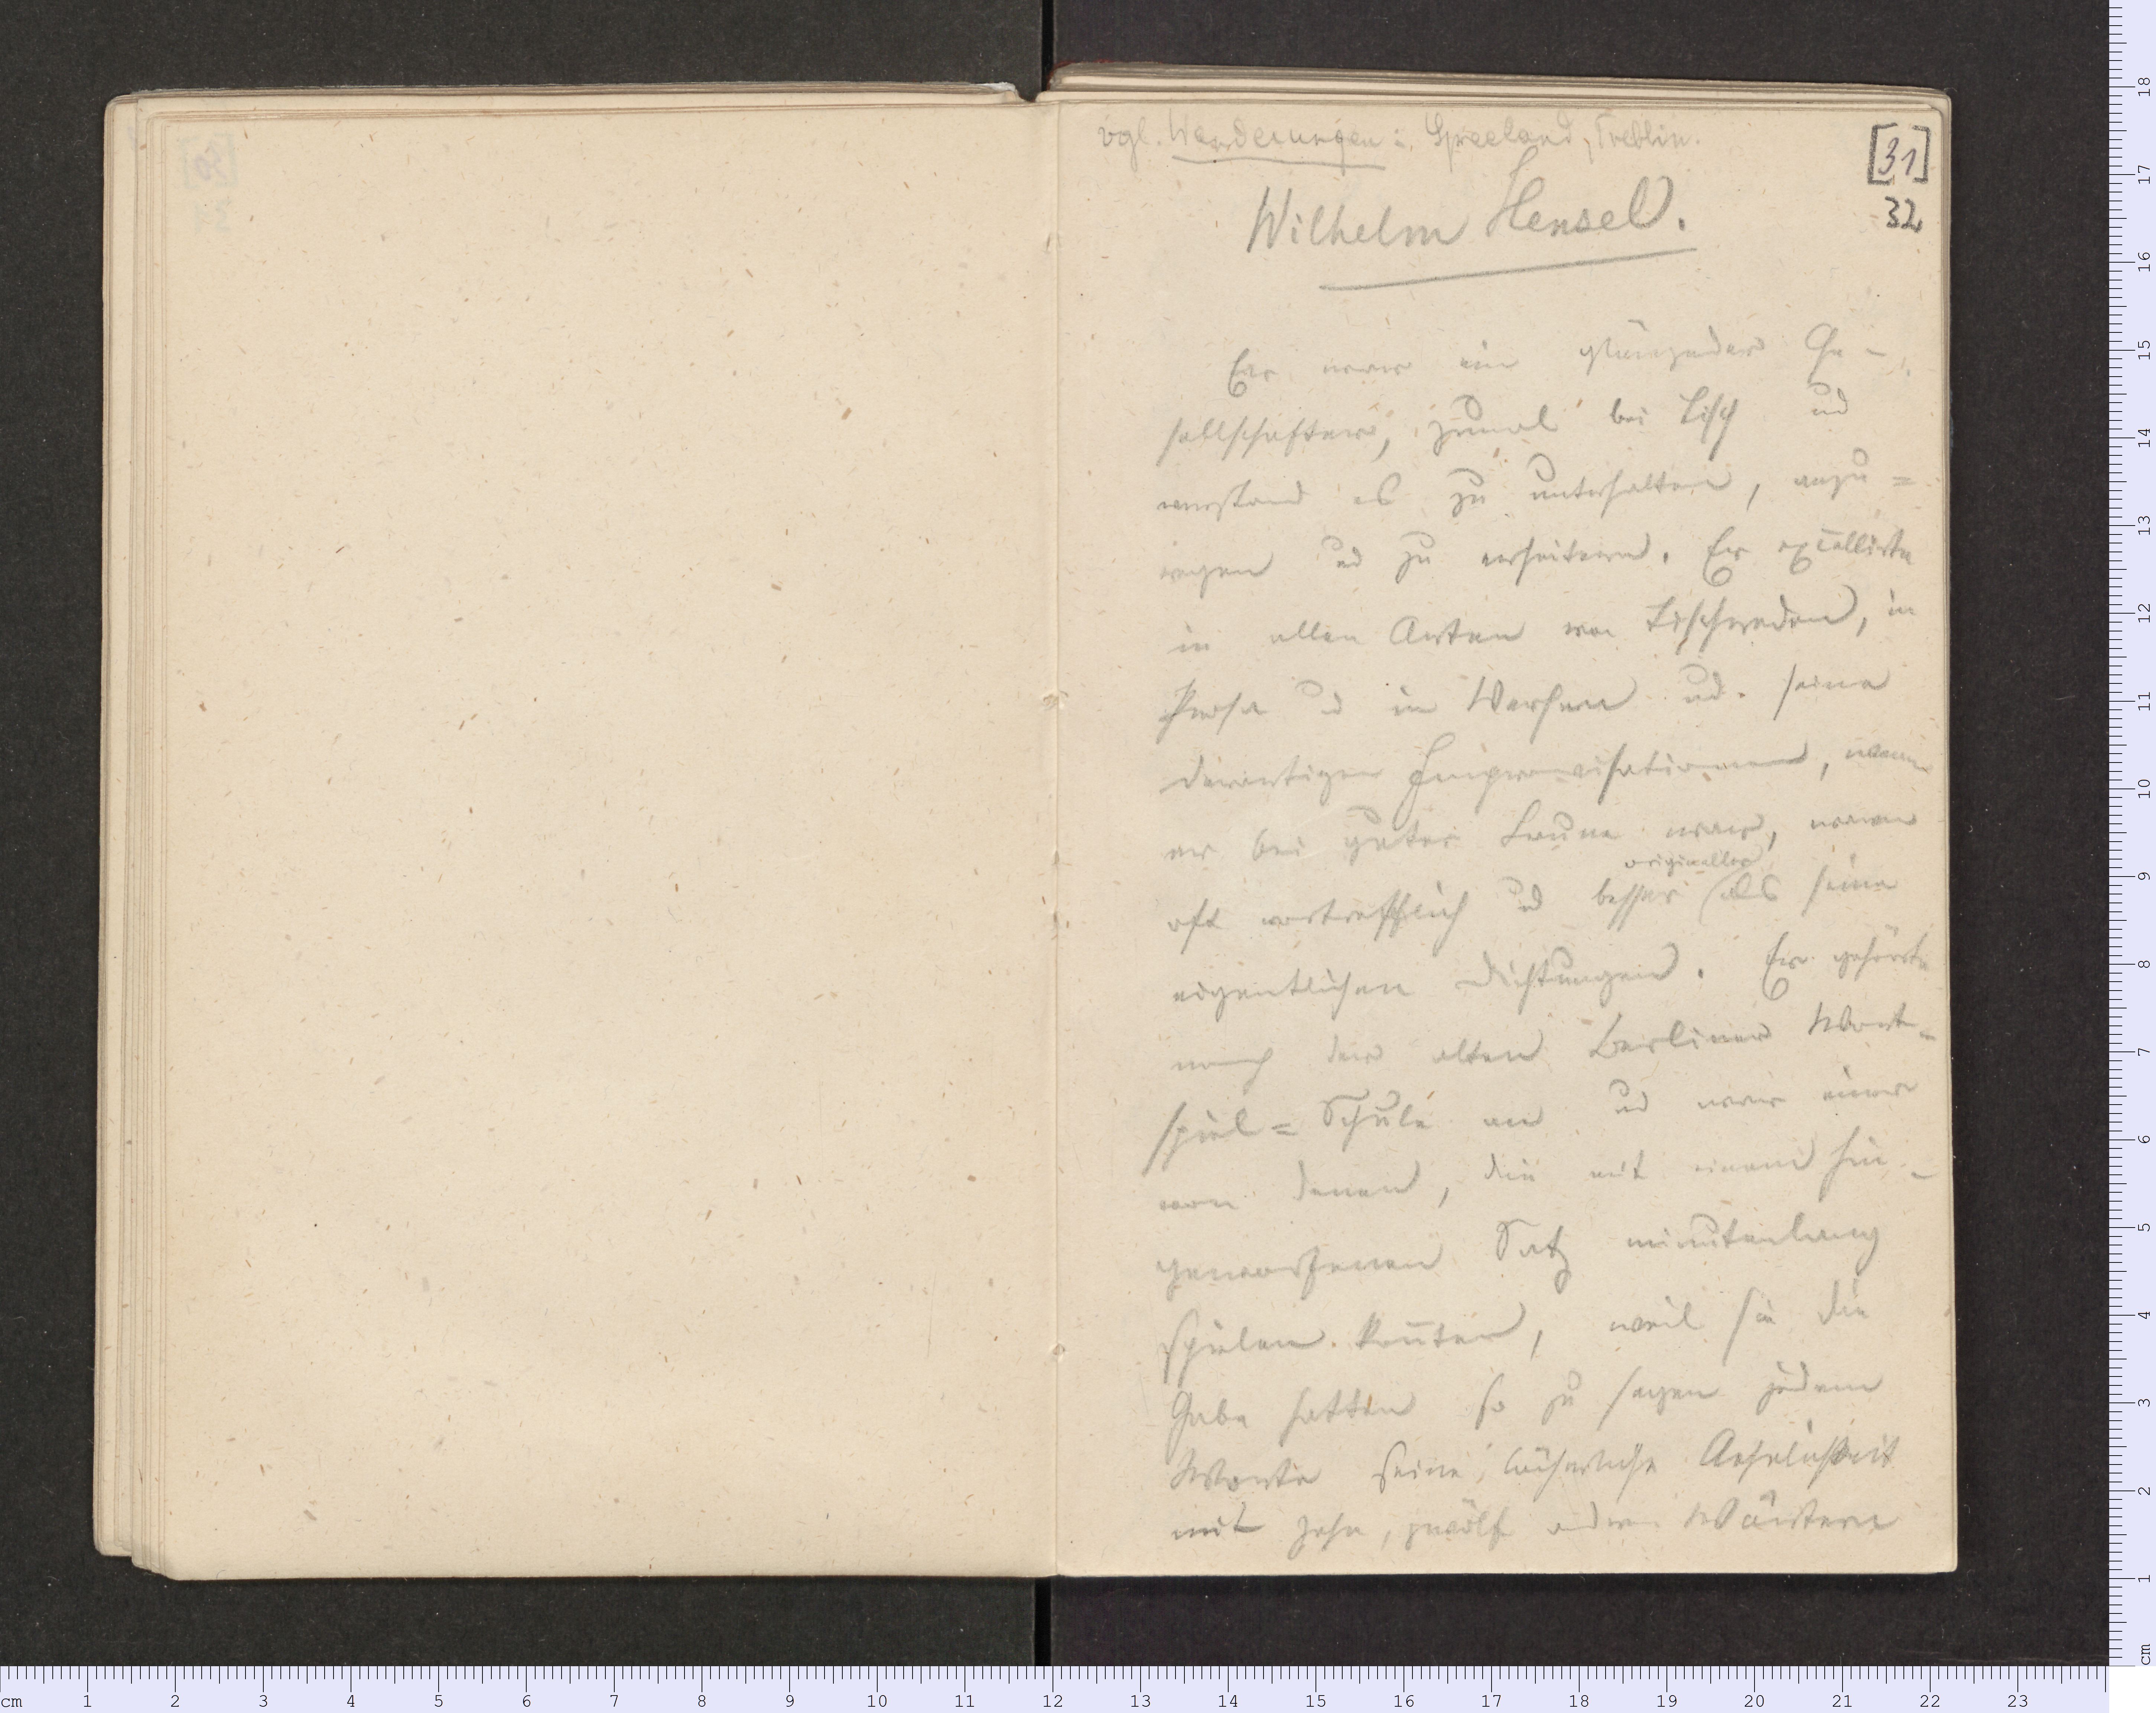 vgl. Wanderungen: Spreeland, Trebbin.
[31]
32
Wilhelm Hensel.
Er war ein glänzender Ge-
sellschafter, zumal bei Tisch und
verstand es zu unterhalten, anzu=
regen und zu erheitern. Er excellirte
in allen Arten von Tischreden, in
Prosa und in Versen und seine
derartigen Improvisationen, wenn
er bei guter Laune war, waren
origineller
oft vortrefflich und besser als seine
eigentlichen Dichtungen. Er gehörte
noch der alten Berliner Wort-
spiel=Schule an und war einer
von denen, die mit einem hin-
geworfenen Satz minutenlang
spielen konnten, weil sie die
Gabe hatten so zu sagen jedem
Worte seine lächerliche Aehnlichkeit
mit zehn, zwölf andren Wörtern